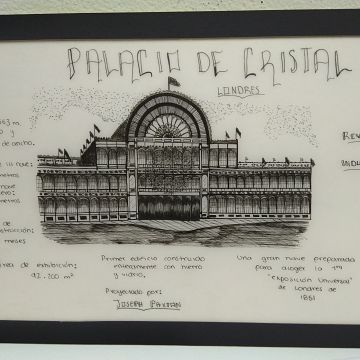 PALACIO DE CRISTAL
LONDRES
163 m.
y
de ancho.
nave
metros
nave
metros
de
meses
de exhibición:
92.200 m²
Primer edificio construido
enteramente con hierro
y vidrio.
Proyectado por:
JOSEPH PAXTON
Una gran nave preparada
para acoger la 1ra
"Exposición Universal"
de Londres de
1851